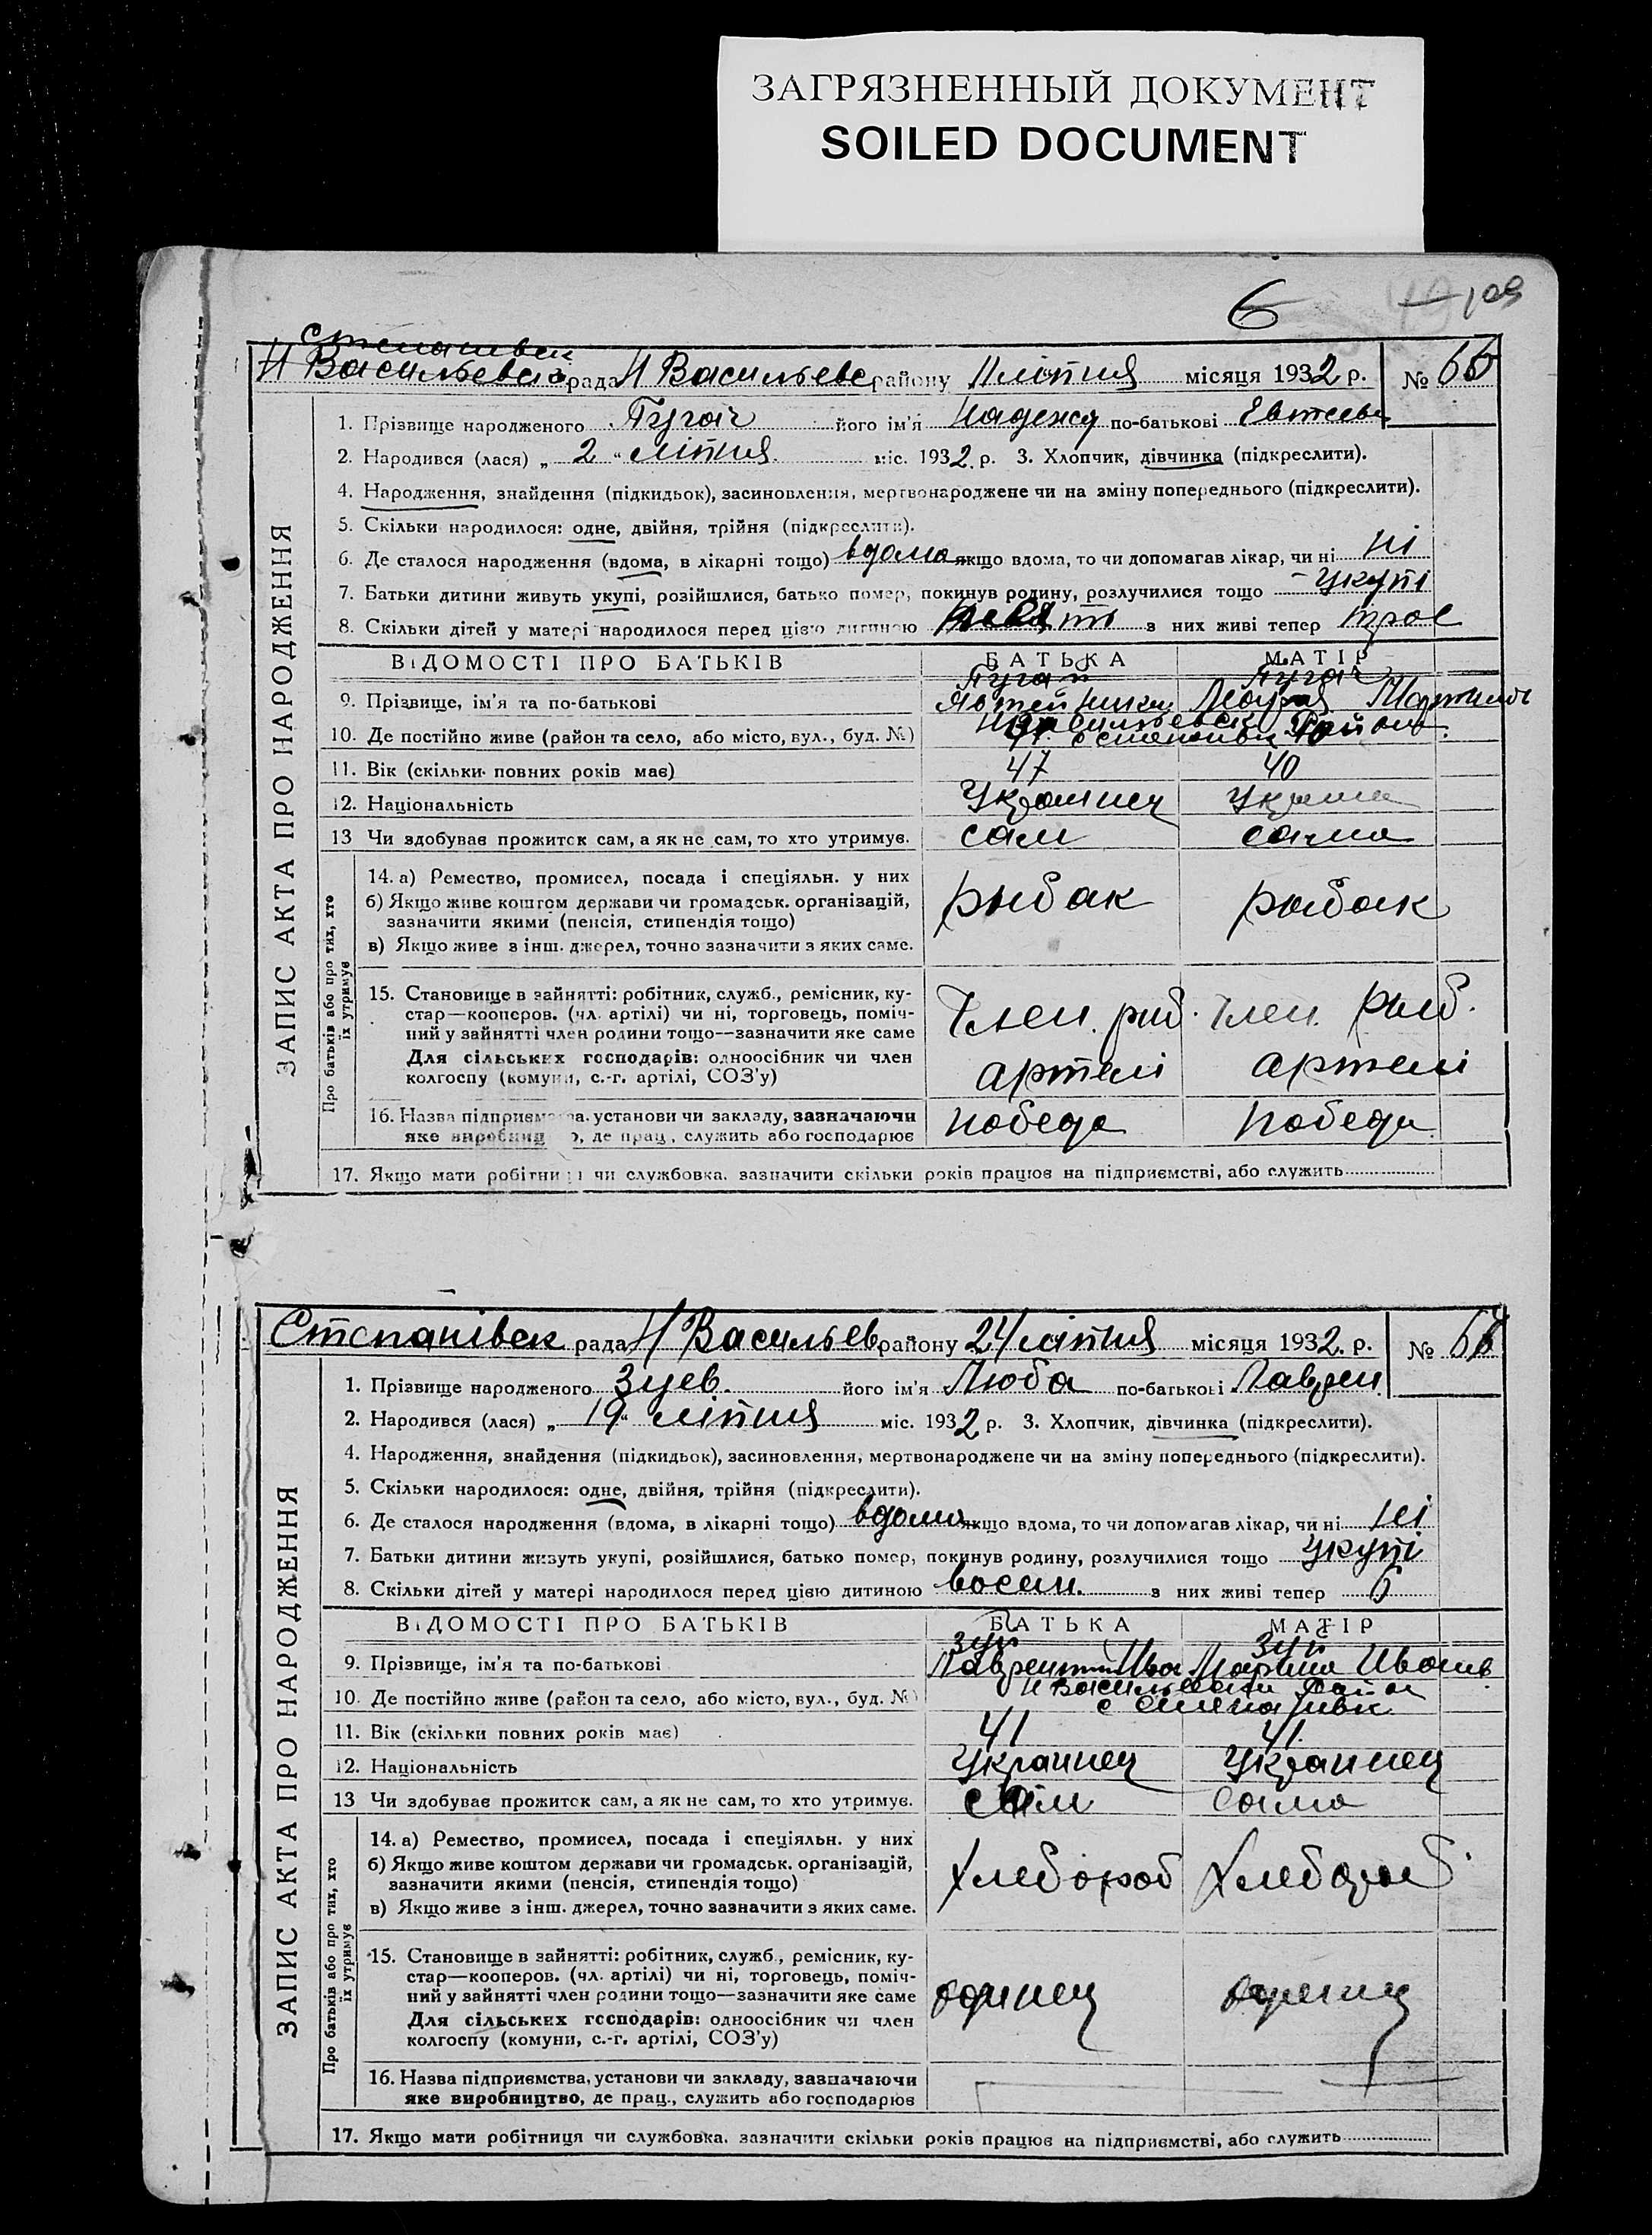 ЗАГРЯЗНЕННЫЙ ДОКУМЕНТ
SOILED DOCUMENT
6 109
Степанівск
Н Васильевсь рада Н Васильевс району 11 літня місяця 1932 р. № 66
ЗАПИС АКТА ПРО НАРОДЖЕННЯ
1. Прізвище народженого Пугач його ім'я Надежд по-батькові Евтеев
2. Народився (лася) „ 2 " літня міс. 1932 р. 3. Хлопчик, дівчинка (підкреслити).
4. Народження, знайдення (підкидьок), засиновлення, мертвонароджене чи на зміну попереднього (підкреслити).
5. Скільки народилося: одне, двійня, трійня (підкреслити).
6. Де сталося народження (вдома, в лікарні тощо) вдома якщо вдома, то чи допомагав лікар, чи ні ні
7. Батьки дитини живуть укупі, розійшлися, батько помер, покинув родину, розлучилися тощо укупі
8. Скільки дітей у матері народилося перед цією дитиною девять з них живі тепер трое
ВІДОМОСТІ ПРО БАТЬКІВ БАТЬКА МАТІР
Пугач Пугач
9. Прізвище, ім'я та по-батькові
10. Де постійно живе (район та село, або місто, вул., буд. №)
11. Вік (скільки повних років має) 47 40
12. Національність Украинец Украин
13 Чи здобував прожиток сам, а як не сам, то хто утримує. сам сама
Про батьків або про тих, хто їх утримує
14. а) Ремество, промисел, посада і спеціяльн. у них
б) Якщо живе коштом держави чи громадськ. організацій,
зазначити якими (пенсія, стипендія тощо) рыбак рыбак
в) Якщо живе з інш. джерел, точно зазначити з яких саме.
15. Становище в зайнятті: робітник, служб., ремісник, ку-
стар—кооперов. (чл. артілі) чи ні, торговець, поміч- Член. рыб. Член. рыб.
ний у зайнятті член родини тощо—зазначити яке саме
Для сільських господарів: одноосібник чи член артелі артелі
колгоспу (комуни, с.-г. артілі, СОЗ'у)
16. Назва підприємства, установи чи закладу, зазначаючи победа победа
яке виробництво, де прац., служить або господарює
17. Якщо мати робітниця чи службовка, зазначити скільки років працює на підприємстві, або служить
Степанівск рада Н Васильев району 24 літня місяця 1932 р. № 67
ЗАПИС АКТА ПРО НАРОДЖЕННЯ
1. Прізвище народженого Зуев його ім'я Люба по-батькові Лаврен
2. Народився (лася) „ 19 " літня міс. 1932 р. 3. Хлопчик, дівчинка (підкреслити).
4. Народження, знайдення (підкидьок), засиновлення, мертвонароджене чи на зміну попереднього (підкреслити).
5. Скільки народилося: одне, двійня, трійня (підкреслити).
6. Де сталося народження (вдома, в лікарні тощо) вдома якщо вдома, то чи допомагав лікар, чи ні ні
7. Батьки дитини живуть укупі, розійшлися, батько помер, покинув родину, розлучилися тощо укупі
8. Скільки дітей у матері народилося перед цією дитиною восем з них живі тепер
ВІДОМОСТІ ПРО БАТЬКІВ БАТЬКА МАТІР
9. Прізвище, ім'я та по-батькові Лаврентий Ива Марина Иванов
10. Де постійно живе (район та село, або місто, вул., буд. №)
11. Вік (скільки повних років має) 41 41
12. Національність Украинец Украинец
13 Чи здобував прожиток сам, а як не сам, то хто утримує. сам сама
Про батьків або про тих, хто їх утримує
14. а) Ремество, промисел, посада і спеціяльн. у них
б) Якщо живе коштом держави чи громадськ. організацій,
зазначити якими (пенсія, стипендія тощо) Хлебороб Хлебороб
в) Якщо живе з інш. джерел, точно зазначити з яких саме.
15. Становище в зайнятті: робітник, служб., ремісник, ку-
стар—кооперов. (чл. артілі) чи ні, торговець, поміч-
ний у зайнятті член родини тощо—зазначити яке саме одинец
Для сільських господарів: одноосібник чи член
колгоспу (комуни, с.-г. артілі, СОЗ'у)
16. Назва підприємства, установи чи закладу, зазначаючи
яке виробництво, де прац., служить або господарює
17. Якщо мати робітниця чи службовка, зазначити скільки років працює на підприємстві, або служить